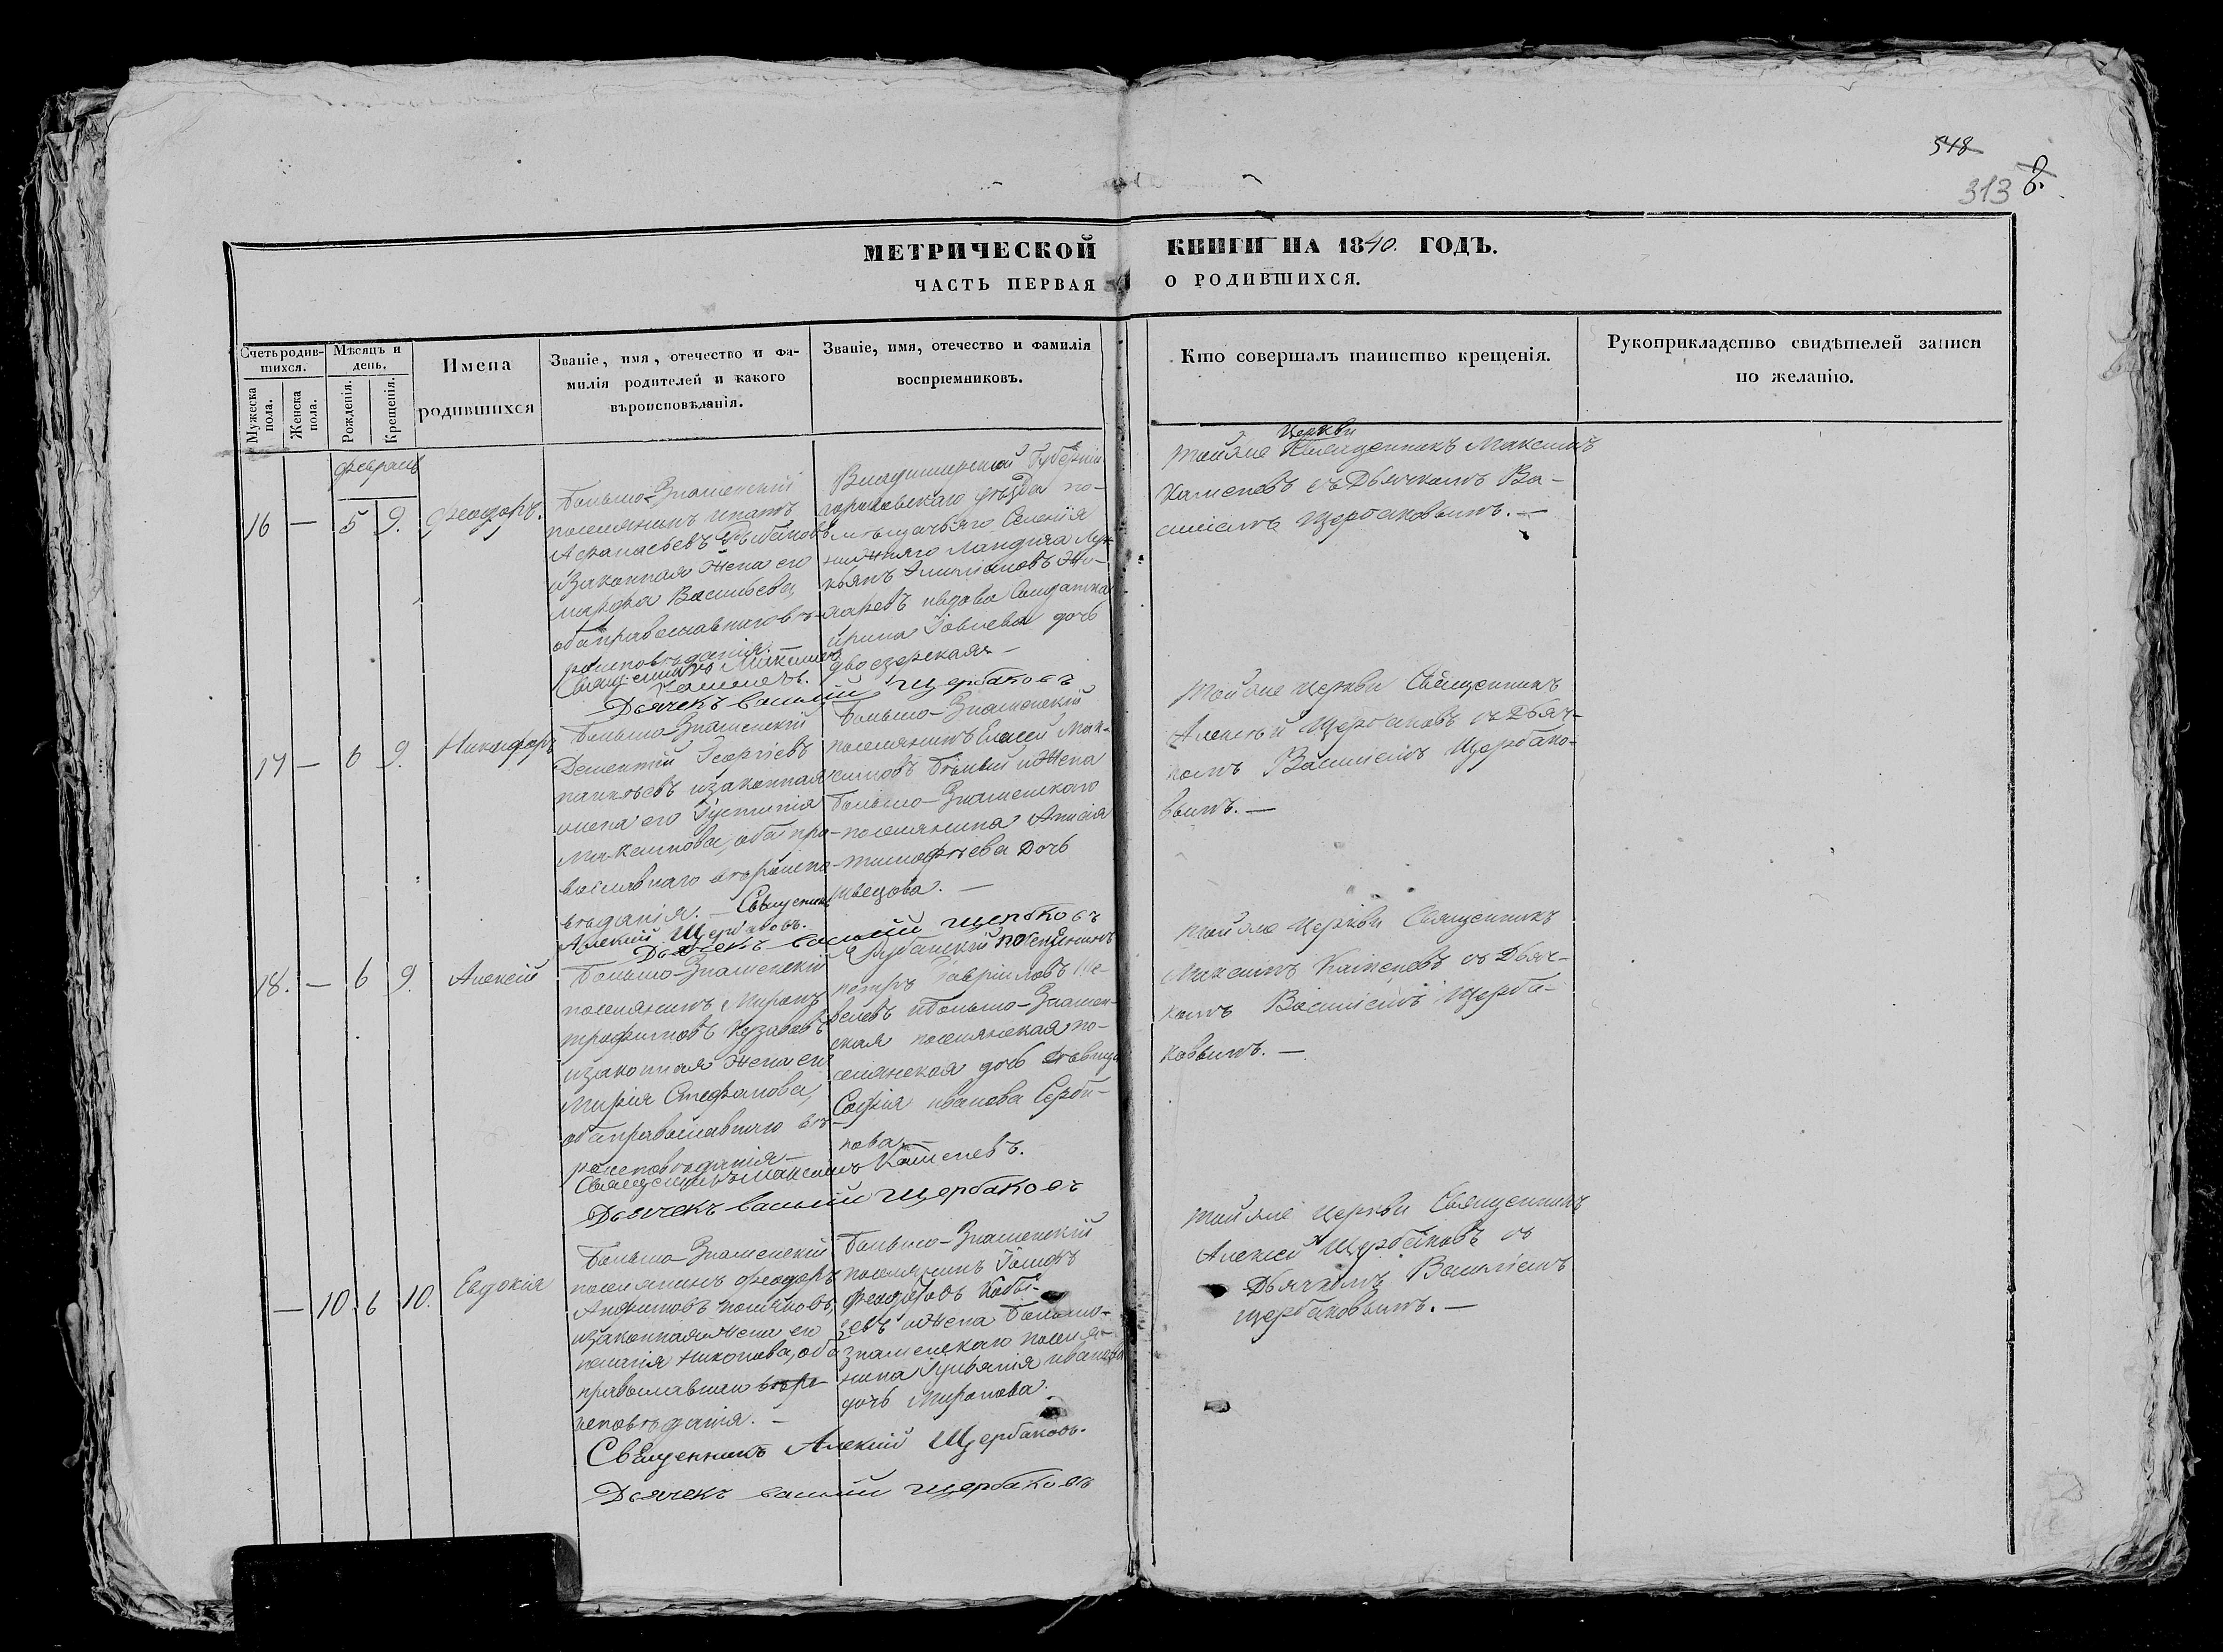 518
313
МЕТРИЧЕСКОЙ КНИГИ НА 1840. ГОДЪ.
ЧАСТЬ ПЕРВАЯ О РОДИВШИХСЯ.
Счетъ родив-
шихся.
Мужеска пола.
Женска пола.
Мѣсяцъ и
день.
Рожденія.
Крещенія.
Имена
родившихся
Званіе, имя, отечество и фа-
милія родителей и какого
вѣроисповѣданія.
Званіе, имя, отечество и фамилія
воспріемниковъ.
Кто совершалъ таинство крещенія.
Рукоприкладство свидѣтелей записи
по желанію.
февраль
16 — 5 9. Феодоръ.
Больше-Знаменскій
поселянинъ Игнатъ
Афанасьевъ
изаконная Жена его
Марфа Васильева
оба православнаго вѣ-
роисповѣданія.—
Священникъ Максимъ
Каменевъ.
Дьячекъ Василій Щербаковъ
Владимирской Губерніи
Гороховскаго уѣзда по-
Селенія
нижняго Ландиха Лу-
кьянъ
ивдова Солдатка
Ирина Іовлева дочь
двоезерская—
тойже Церкви Священникъ Максимъ
Каменевъ съ Дьячкомъ Ва-
силіемъ Щербаковымъ.—
17 — 6 9. Никифоръ
Больше-Знаменскій
Дементій Георгіевъ
изаконная
жена его Іустинія
Максимова, оба пра-
вославнаго вѣроиспо-
вѣданія.— Священникъ
Алексій Щербаковъ.
Дьячекъ Василій Щербаковъ
Больше-Знаменскій
поселянинъ Елисей Мак-
симовъ Бѣлый иЖена
Больше-Знаменскаго
поселянина Анисія
Тимофѣева Дочь
Швецова.—
тойже Церкви Священникъ
Алексій Щербаковъ съ Дьяч-
комъ Василіемъ Щербако-
вымъ.—
18. — 6 9. Алексѣй
Больше-Знаменскій
поселянинъ Миронъ
Трофимовъ Кузавовъ
изаконная Жена его
Марія Стефанова,
оба православнаго вѣ-
роисповѣданія—
Священникъ Максимъ Каменевъ.
Дьячекъ Василій Щербаковъ
Петръ Гавріиловъ Ше-
велевъ иБольше-Знамен-
ская поселянская по-
селянская дочь дѣвица
Софія иванова Серби-
нова—
тойже Церкви Священникъ
Максимъ Каменевъ съ Дьяч-
комъ Василіемъ Щерба-
ковымъ.—
— 10 6 10. Евдокія
Больше-Знаменскій
поселянинъ Феодоръ
Анфимовъ Поляковъ,
изаконная Жена его
Пелагія Никонова, оба
православнаго вѣро-
исповѣданія.—
Священникъ Алексій Щербаковъ.
Дьячекъ Василій Щербаковъ
Больше-Знаменскій
поселянинъ Іоаннъ
Феодоровъ Кобы-
зевъ иЖена Больше-
знаменскаго поселя-
нина Іуліянія иванова
дочь Миронова.
тойже Церкви Священникъ
Алексій Щербаковъ съ
Дьячкомъ Василіемъ
Щербаковымъ.—